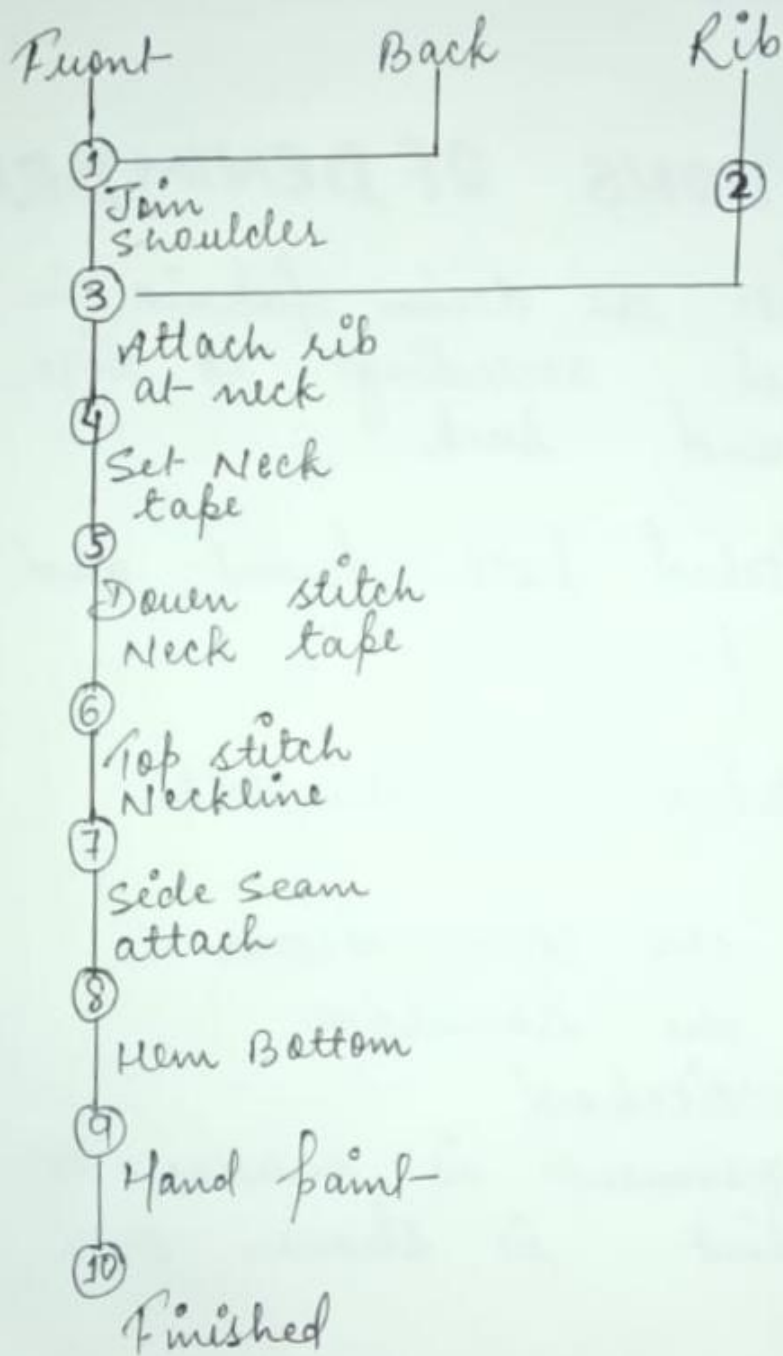 Front Back Rib
1
2
Join
shoulder
3
Attach rib
at neck
4
Set Neck
tape
5
Down stitch
Neck tape
6
Top stitch
Neckline
7
Side Seam
attach
8
Hem Bottom
9
Hand paint
10
Finished